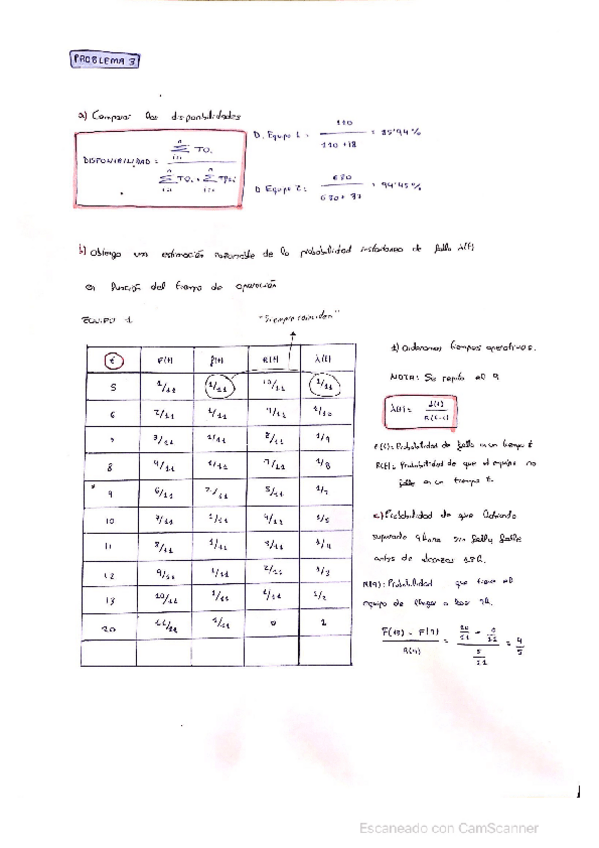 PROBLEMA 3
a) Comparar las disponibilidades
DISPONIBILIDAD =
D. Equipo 1 = 110 / 110 + 18 = 85'94 %
D. Equipo 2 = 94'45 %
b) Obtenga una estimación razonable de la probabilidad instantanea de fallo λ(t)
en función del tiempo de operación
EQUIPO 1
"Siempre coinciden"
t F(t) f(t) R(t) λ(t)
5 1/11 1/11 10/11 1/11
6 2/11 1/11 9/11 1/10
7 3/11 1/11 8/11 1/9
8 4/11 1/11 7/11 1/8
* 9 6/11 2/11 5/11
10 7/11 1/11 4/11 1/5
11 8/11 1/11 3/11 1/4
12 9/11 1/11 2/11 1/3
13 10/11 1/11 1/2
20 11/11 1/11 0 1
1) Ordenamos tiempos operativos.
NOTA: Se repite el 9
F(t): Probabilidad de fallo en un tiempo t
R(t): Probabilidad de que el equipo no
falle en un tiempo t.
c) Probabilidad de que habiendo
superado 9 horas sin fallo, falle
antes de alcanzar
R(9): Probabilidad que tiene el
equipo de llegar a las 9h.
= 4/5
Escaneado con CamScanner